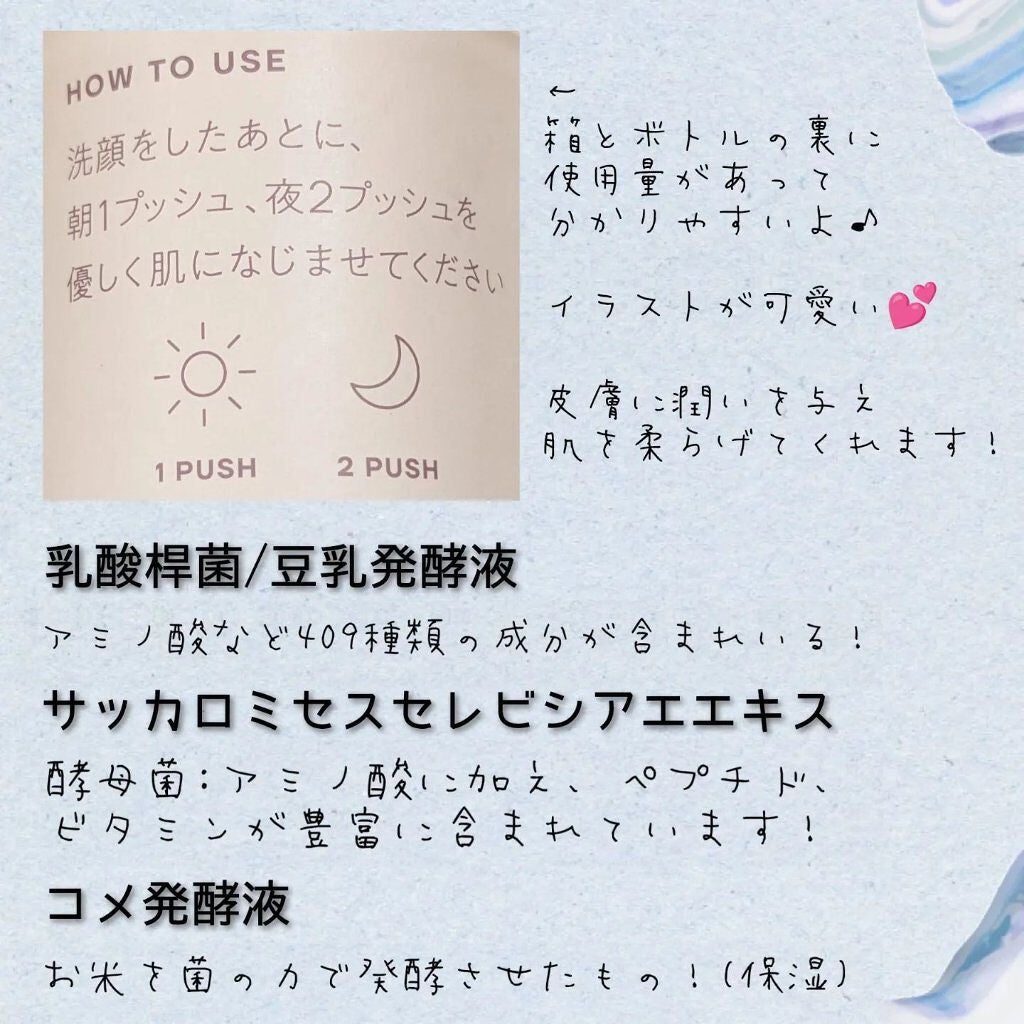 HOW TO USE
洗顔をしたあとに、
朝1プッシュ、夜2プッシュを
優しく肌になじませてください
1 PUSH
2 PUSH
←
箱とボトルの裏に
使用量があって
分かりやすいよ♪
イラストが可愛い💕
皮膚に潤いを与え
肌を柔らげてくれます！
乳酸桿菌/豆乳発酵液
アミノ酸など409種類の成分が含まれいる！
サッカロミセスセレビシアエエキス
酵母菌：アミノ酸に加え、ペプチド、
ビタミンが豊富に含まれています！
コメ発酵液
お米を菌の力で発酵させたもの！(保湿)